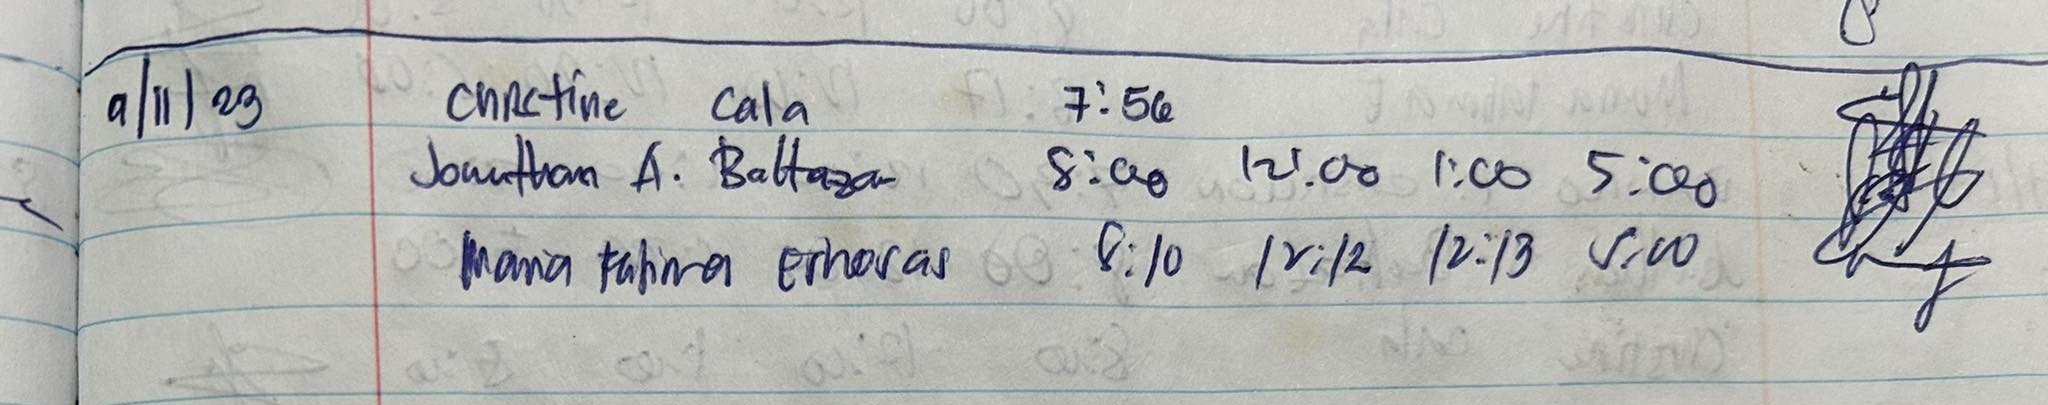 9/11/23 Christine Cala 7:56
Jonathan A. Baltazar 8:00 12:00 1:00 5:00
Maria Fatima 8:10 12:12 12:13 5:00